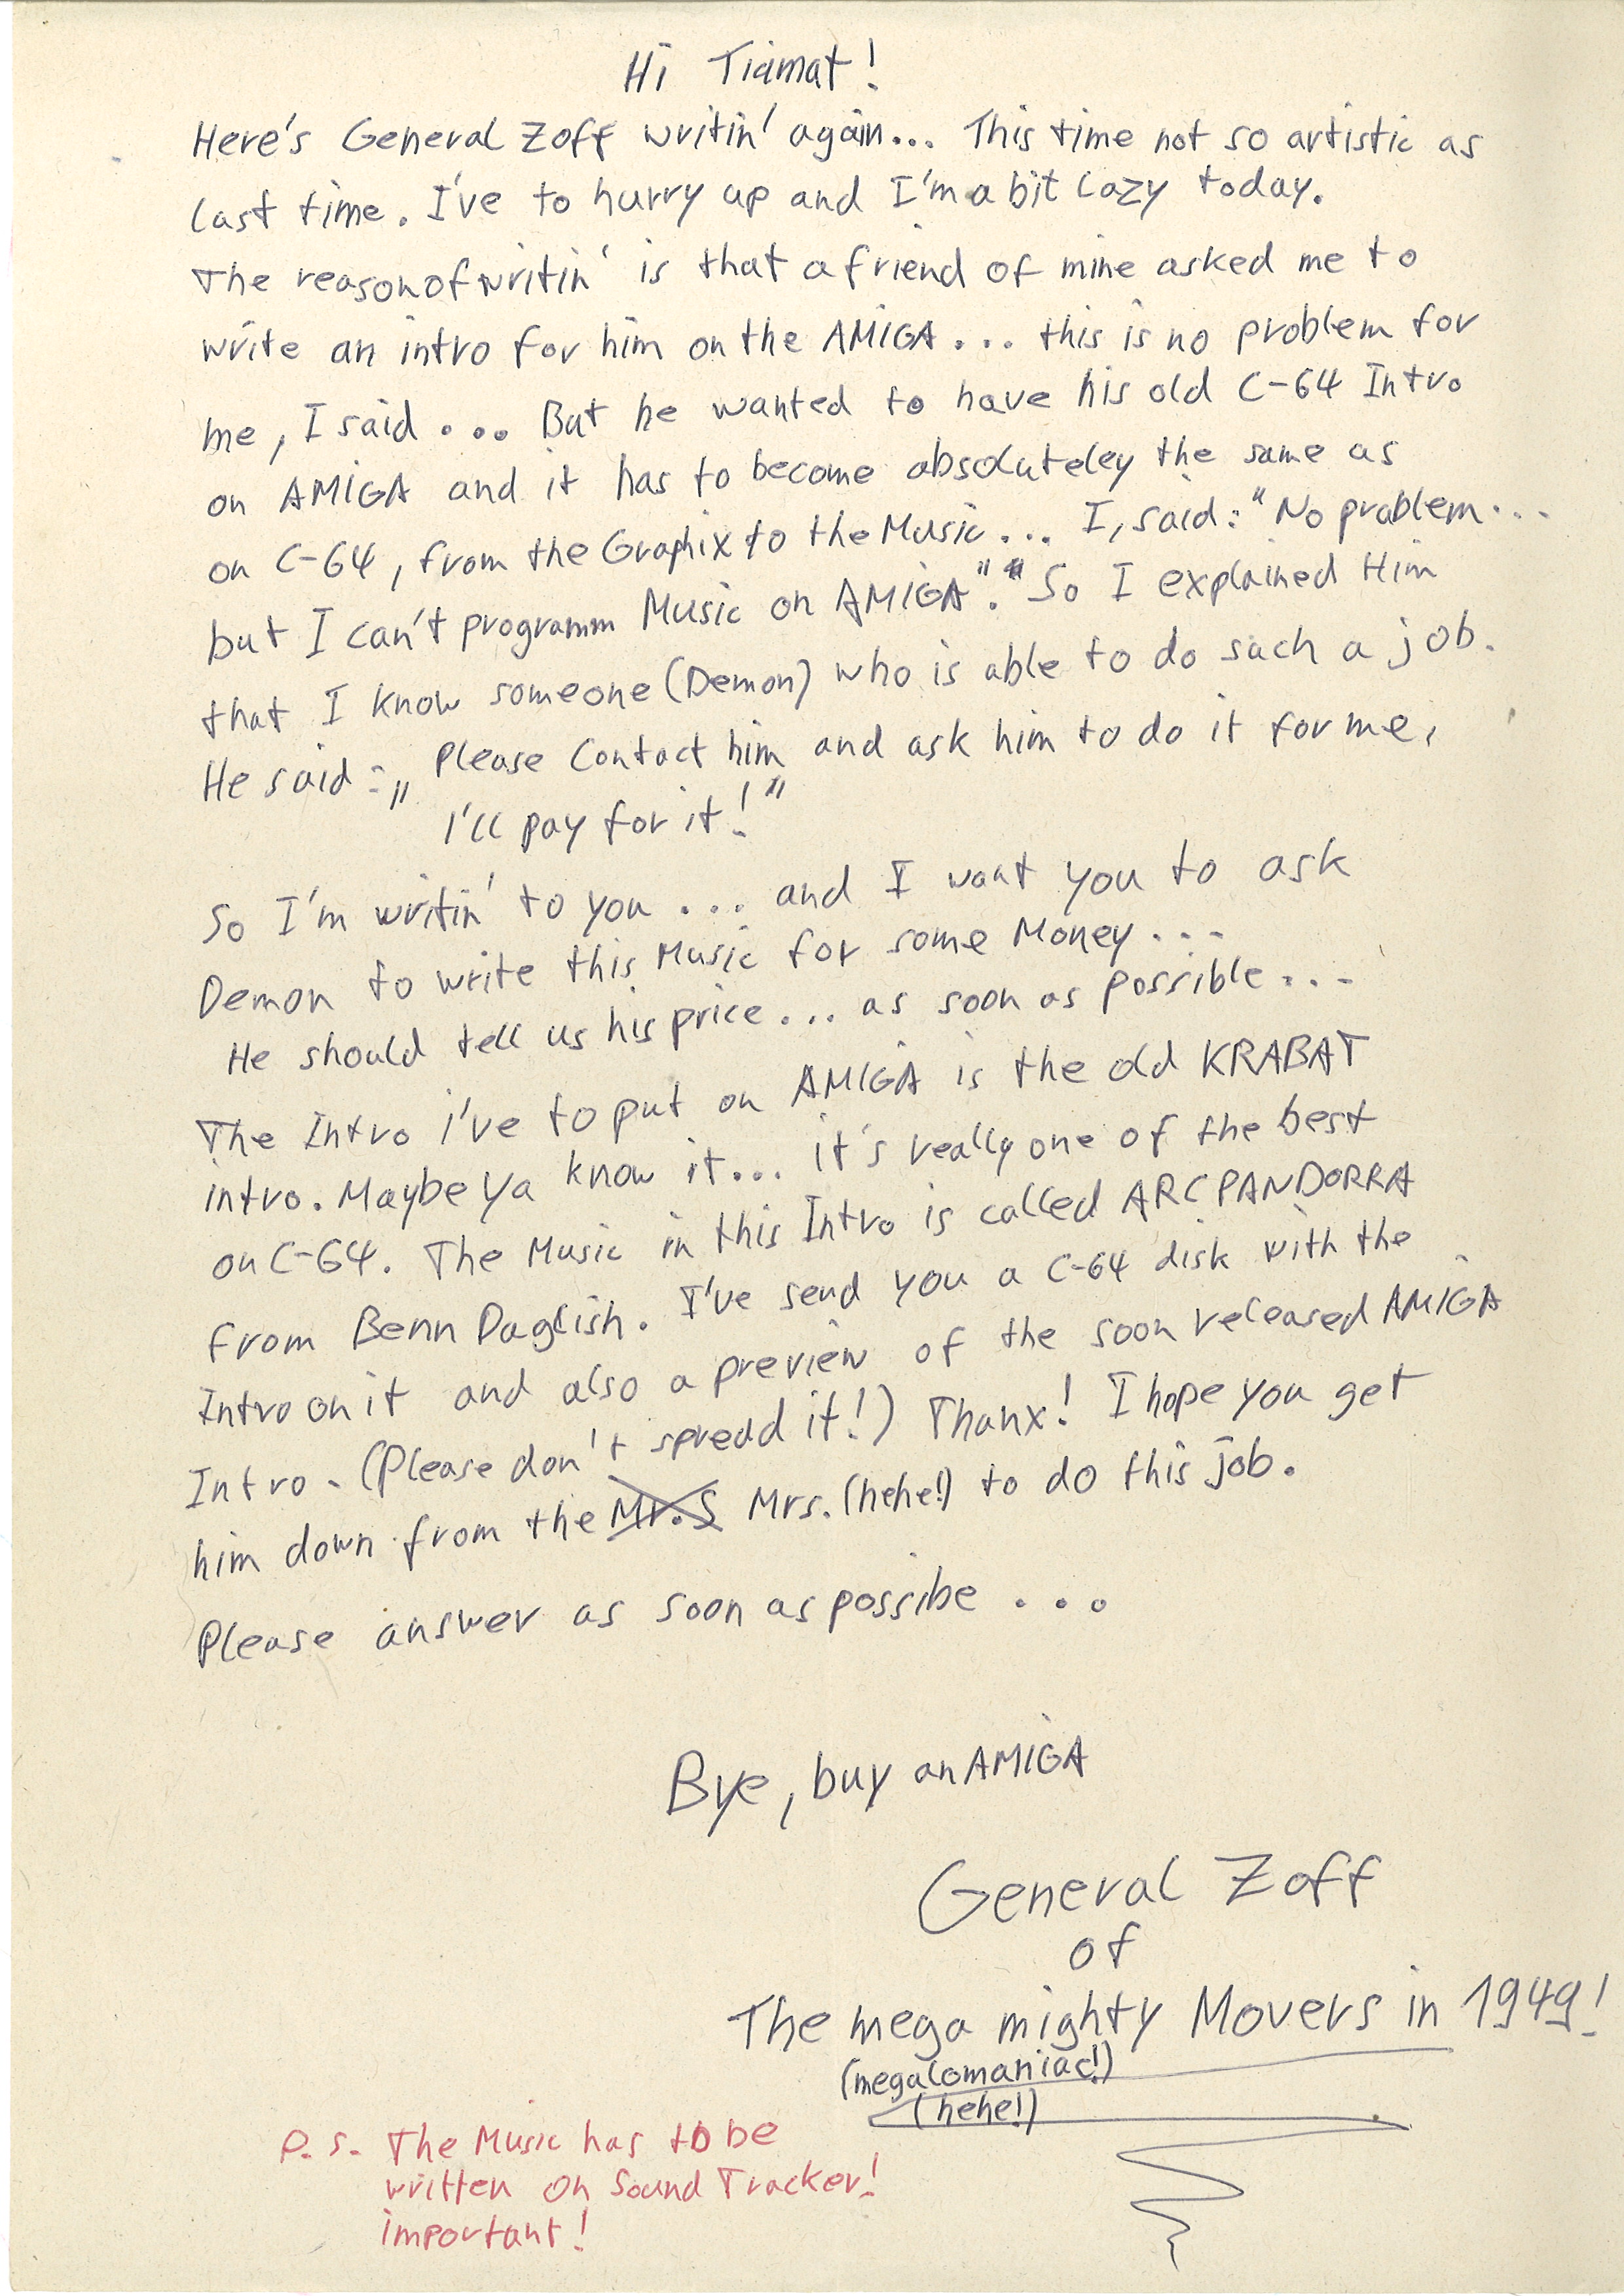 Hi Tiamat!
Here's General Zoff writin' again... This time not so artistic as
last time. I've to hurry up and I'm a bit lazy today.
The reason of writin' is that a friend of mine asked me to
write an intro for him on the AMIGA... this is no problem for
me, I said... But he wanted to have his old C-64 Intro
on AMIGA and it has to become absoluteley the same as
on C-64, from the Graphix to the Music... I, said: "No problem...
but I can't programm Music on AMIGA". So I explained Him
that I know someone (Demon) who is able to do such a job.
He said: „Please Contact him and ask him to do it for me,
I'll pay for it!"
So I'm writin' to you... and I want you to ask
Demon to write this Music for some Money...
He should tell us his price... as soon as possible...
The Intro i've to put on AMIGA is the old KRABAT
intro. Maybe Ya know it... it's really one of the best
on C-64. The Music in this Intro is called ARC PANDORRA
from Benn Daglish. I've send you a C-64 disk with the
Intro on it and also a preview of the soon released AMIGA
Intro. (Please don't spread it!) Thanx! I hope you get
him down from the Mr. S Mrs. (hehe!) to do this job.
Please answer as soon as possibe...
Bye, buy an AMIGA
General Zoff
of
The mega mighty Movers in 1949!
(megalomaniac!)
(hehe!)
P.S. The Music has to be
written on Sound Tracker!
important!